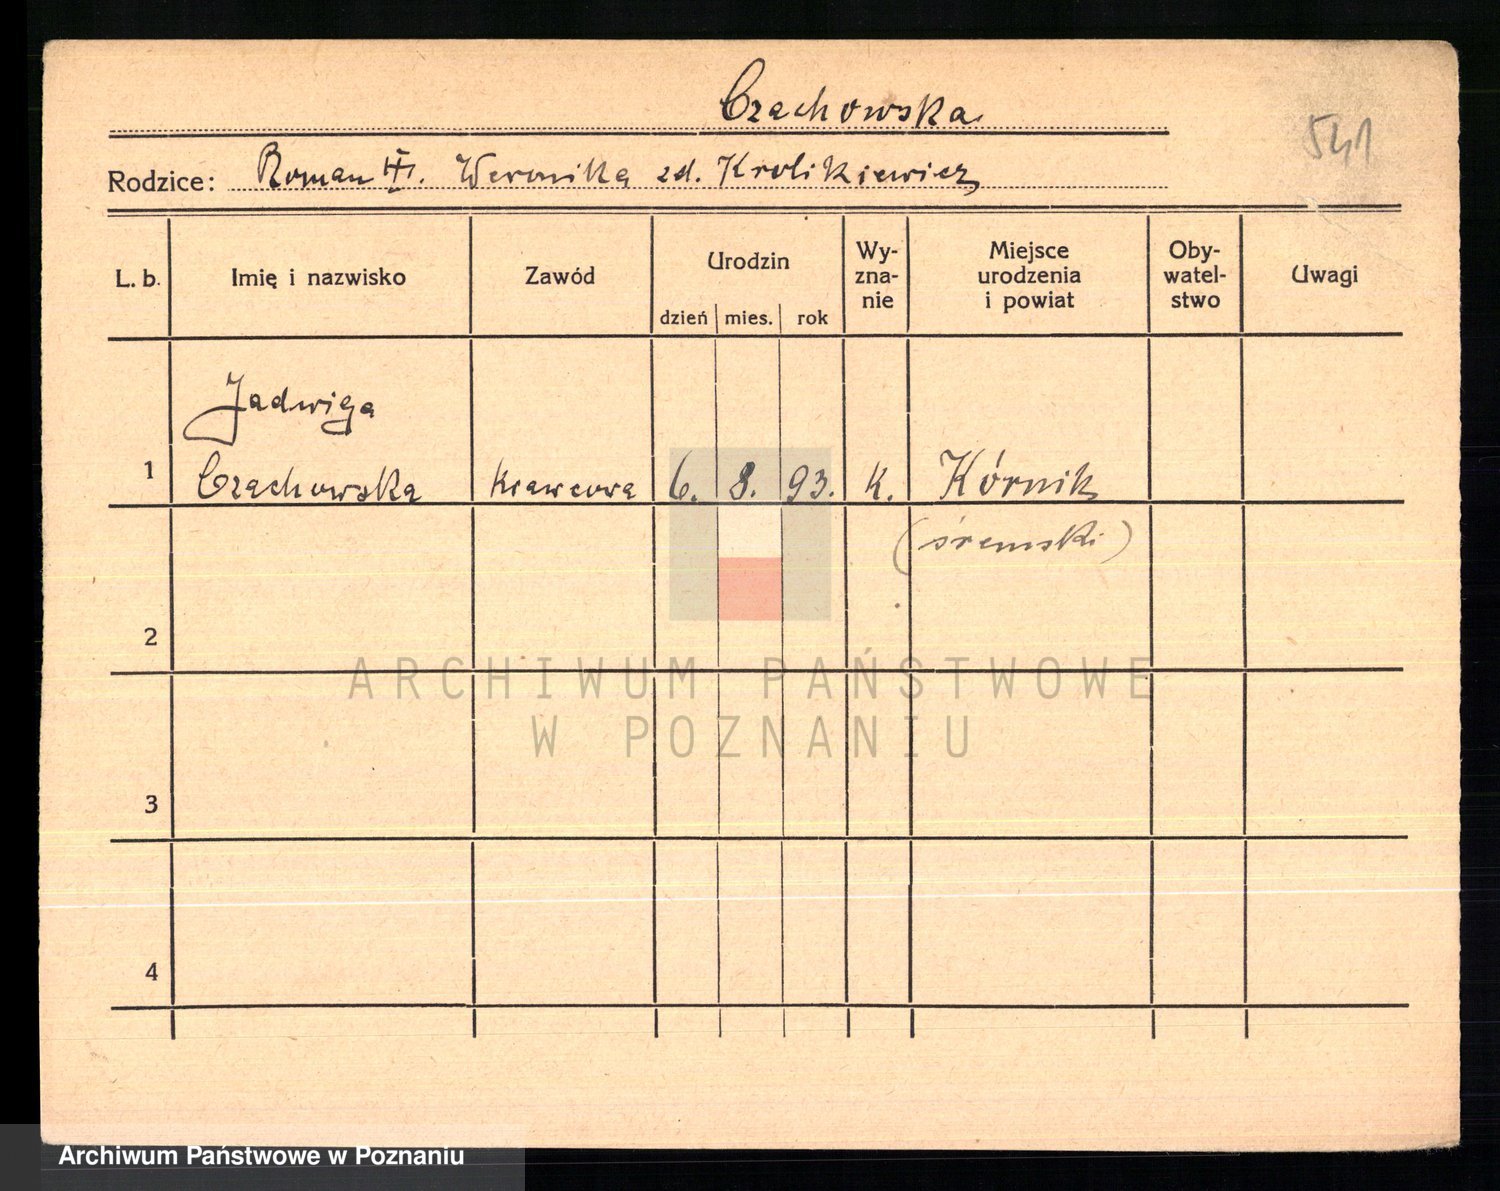 Czachowska
541
Rodzice: Roman ‡. Weronika zd. Krolikiewicz
L. b.
Imię i nazwisko
Zawód
Urodzin
dzień mies. rok
Wy-
zna-
nie
Miejsce
urodzenia
i powiat
Oby-
watel-
stwo
Uwagi
Jadwiga
1 Czachowska krawcowa 6. 8. 93. k. Kórnik
(śremski)
2
3
4
ARCHIWUM PAŃSTWOWE
W POZNANIU
Archiwum Państwowe w Poznaniu